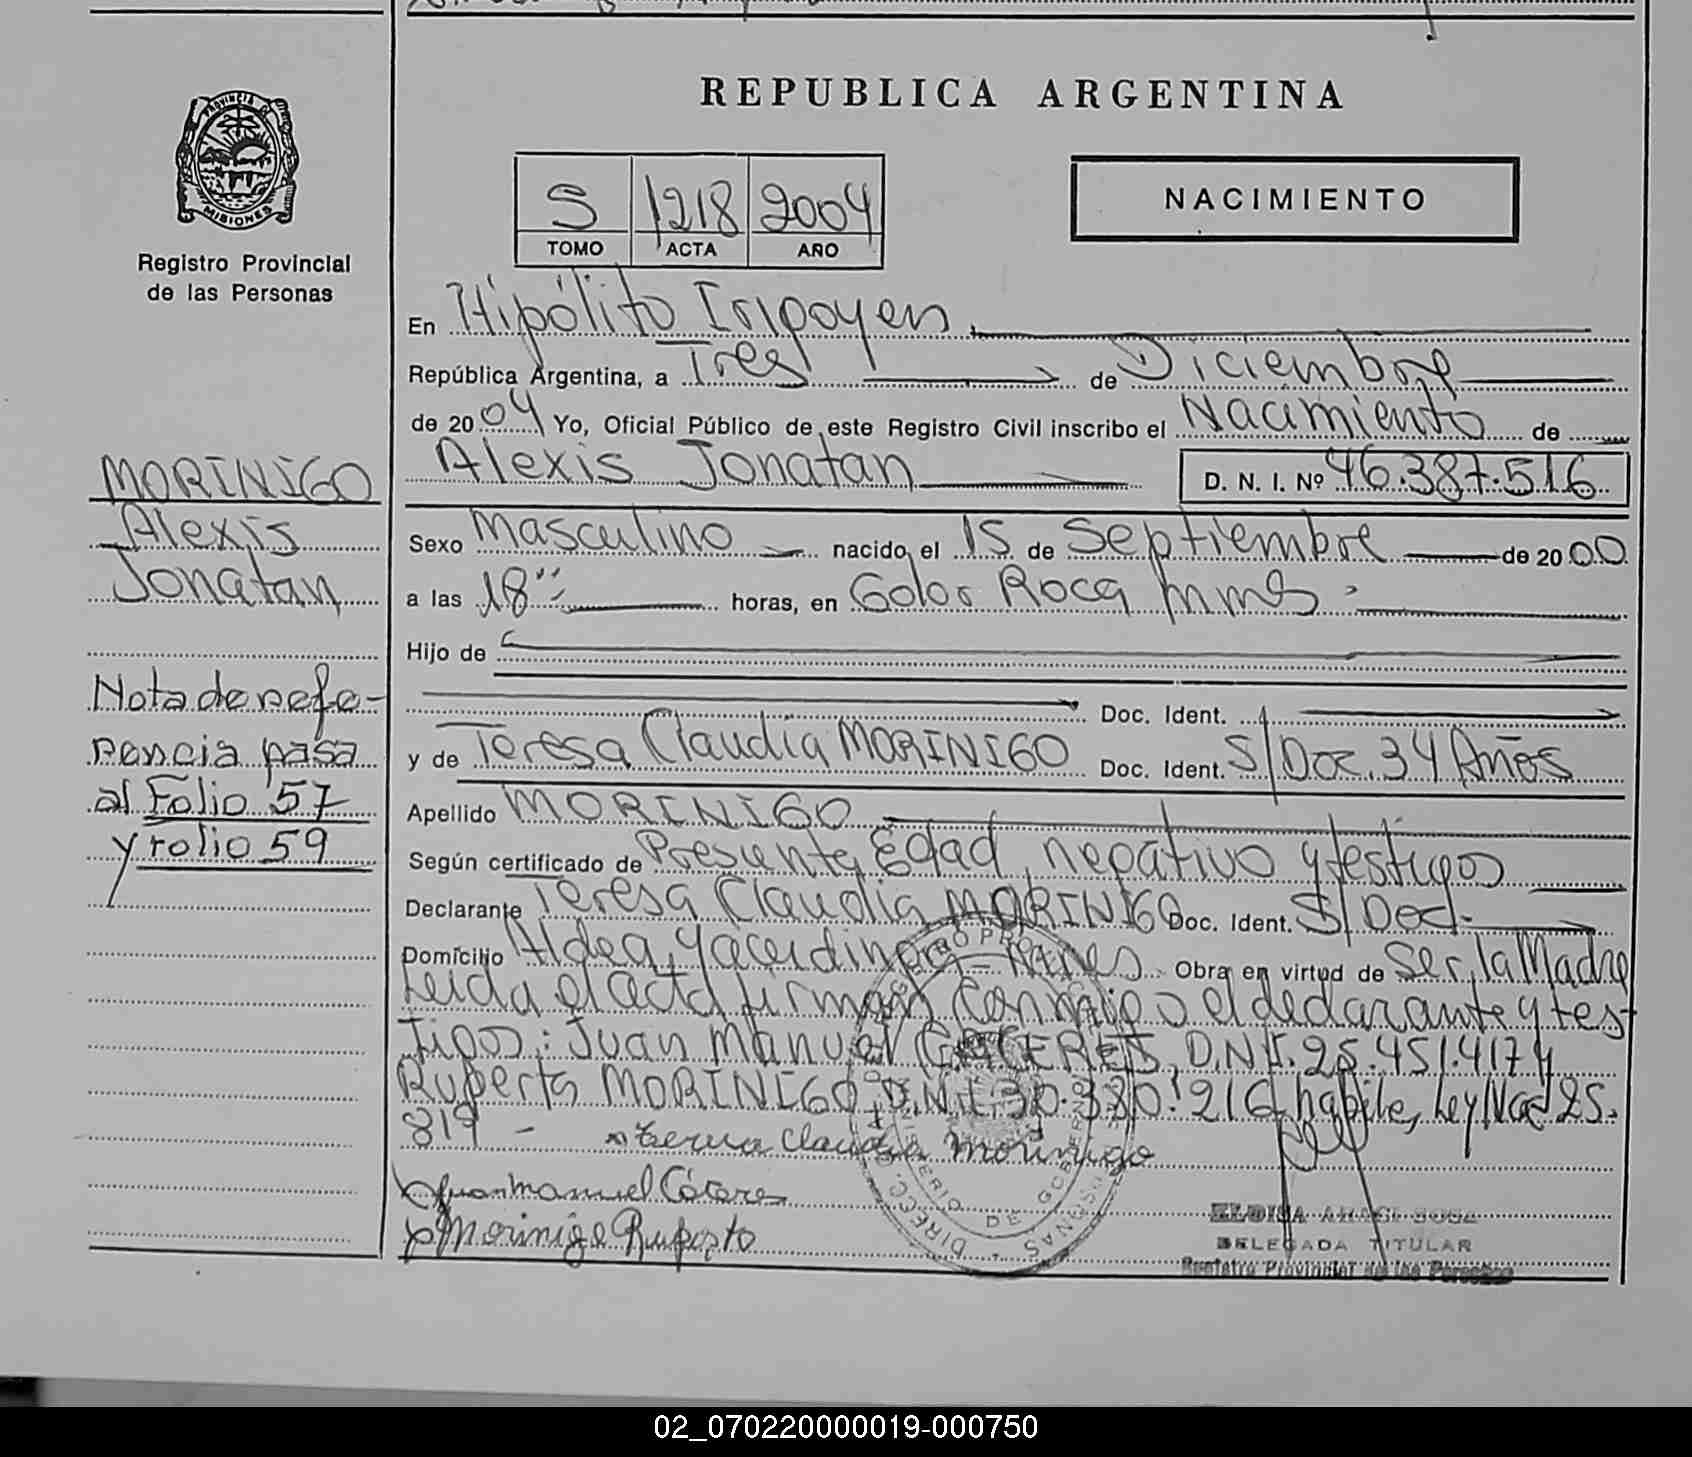 REPUBLICA ARGENTINA
PROVINCIA DE MISIONES
Registro Provincial
de las Personas
S 1218 2004
TOMO ACTA AÑO
NACIMIENTO
En Hipólito Irigoyen
República Argentina, a Tres de Diciembre
de 2004 Yo, Oficial Público de este Registro Civil inscribo el Nacimiento de
Alexis Jonatan D. N. I. Nº 46.387.516
Sexo Masculino nacido el 15 de Septiembre de 2000
a las 18 horas, en Colos Roca Mnes
Hijo de
Doc. Ident.
y de Teresa Claudia MORINIGO Doc. Ident. S/Doc. 34 Años
Apellido MORINIGO
Según certificado de Presunta Edad, negativo y testigos
Declarante Teresa Claudia MORINIGO Doc. Ident. S/Doc.
Domicilio Aldea - Mnes Obra en virtud de Ser la Madre
Leida el acta firman conmigo el declarante y tes
tigos: Juan Manuel CACERES, D.N.I. 25.451.417 y
Ruperto MORINIGO D.N.I. 30.380.216 habiles, Ley Nac 25.
819 -
Teresa Claudia Morinigo
Juan Manuel Cáceres
Morinigo Ruperto
ELOISA SOSA
DELEGADA TITULAR
Registro Provincial de las Personas
MORINIGO
Alexis
Jonatan
Nota de refe-
rencia pasa
al Folio 57
y folio 59
02_070220000019-000750